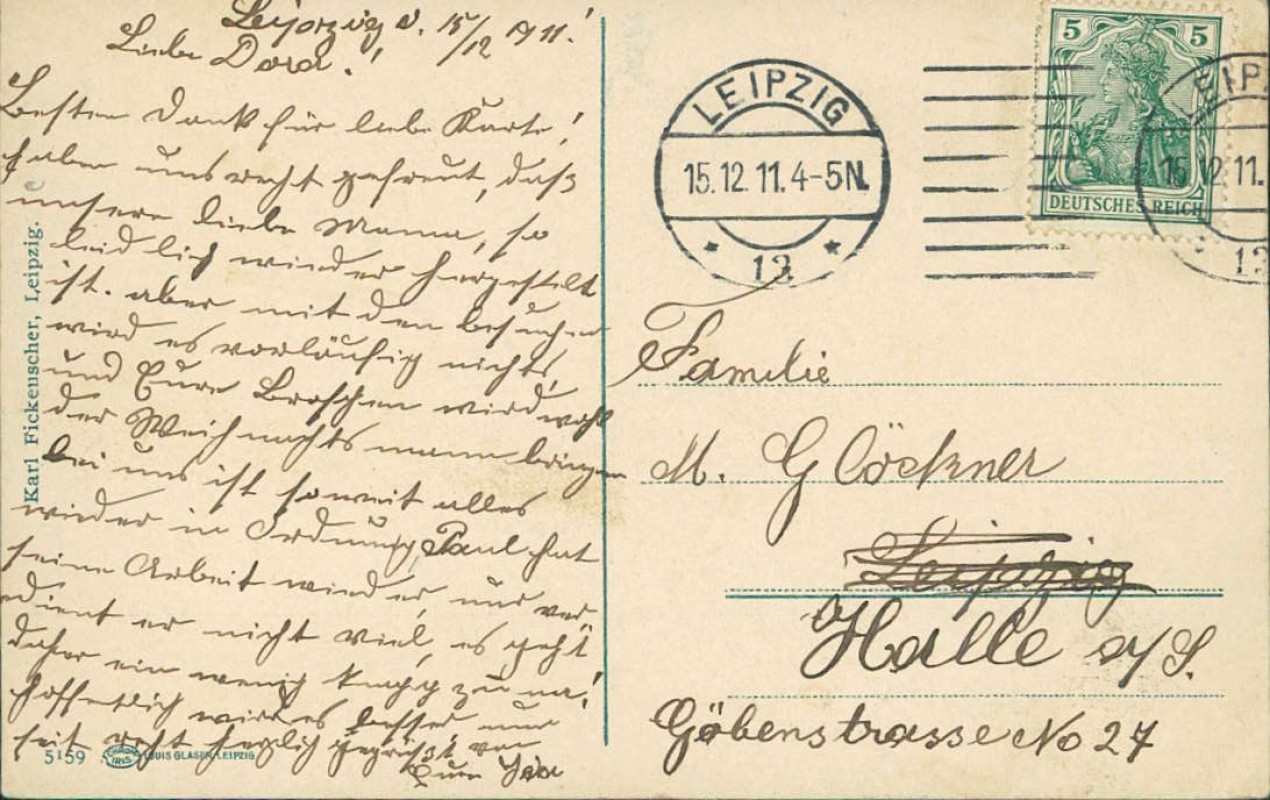 Leipzig d. 15/12 1911!
Liebe Dora!
Besten Dank für liebe Karte!
haben uns recht gefreut, daß
unsere liebe Mama, so
leidlich wieder hergestelt
ist. aber mit den besuchen
wird es vorläufig nichts,
und Eure Broschen wird wohl
der Weihnachtsmann bringen
bei uns ist soweit alles
wieder in Ordnung, Paul hat
seine Arbeit wieder, nur ver-
dient er nicht viel, es geht
daher ein wenig knapp zu
hoffentlich wird es besser nun
seid recht herzlich gegrüßt von
Eurer
Karl Fickeuscher, Leipzig.
5159
CHROM IRIS
LOUIS GLASER, LEIPZIG
LEIPZIG
15.12.11.4-5N.
13
5 5
DEUTSCHES REICH
LEIPZ
15.12.11.
13
Familie
M. Glöckner
Leipzig
Halle a/S.
Göbenstrasse No 27